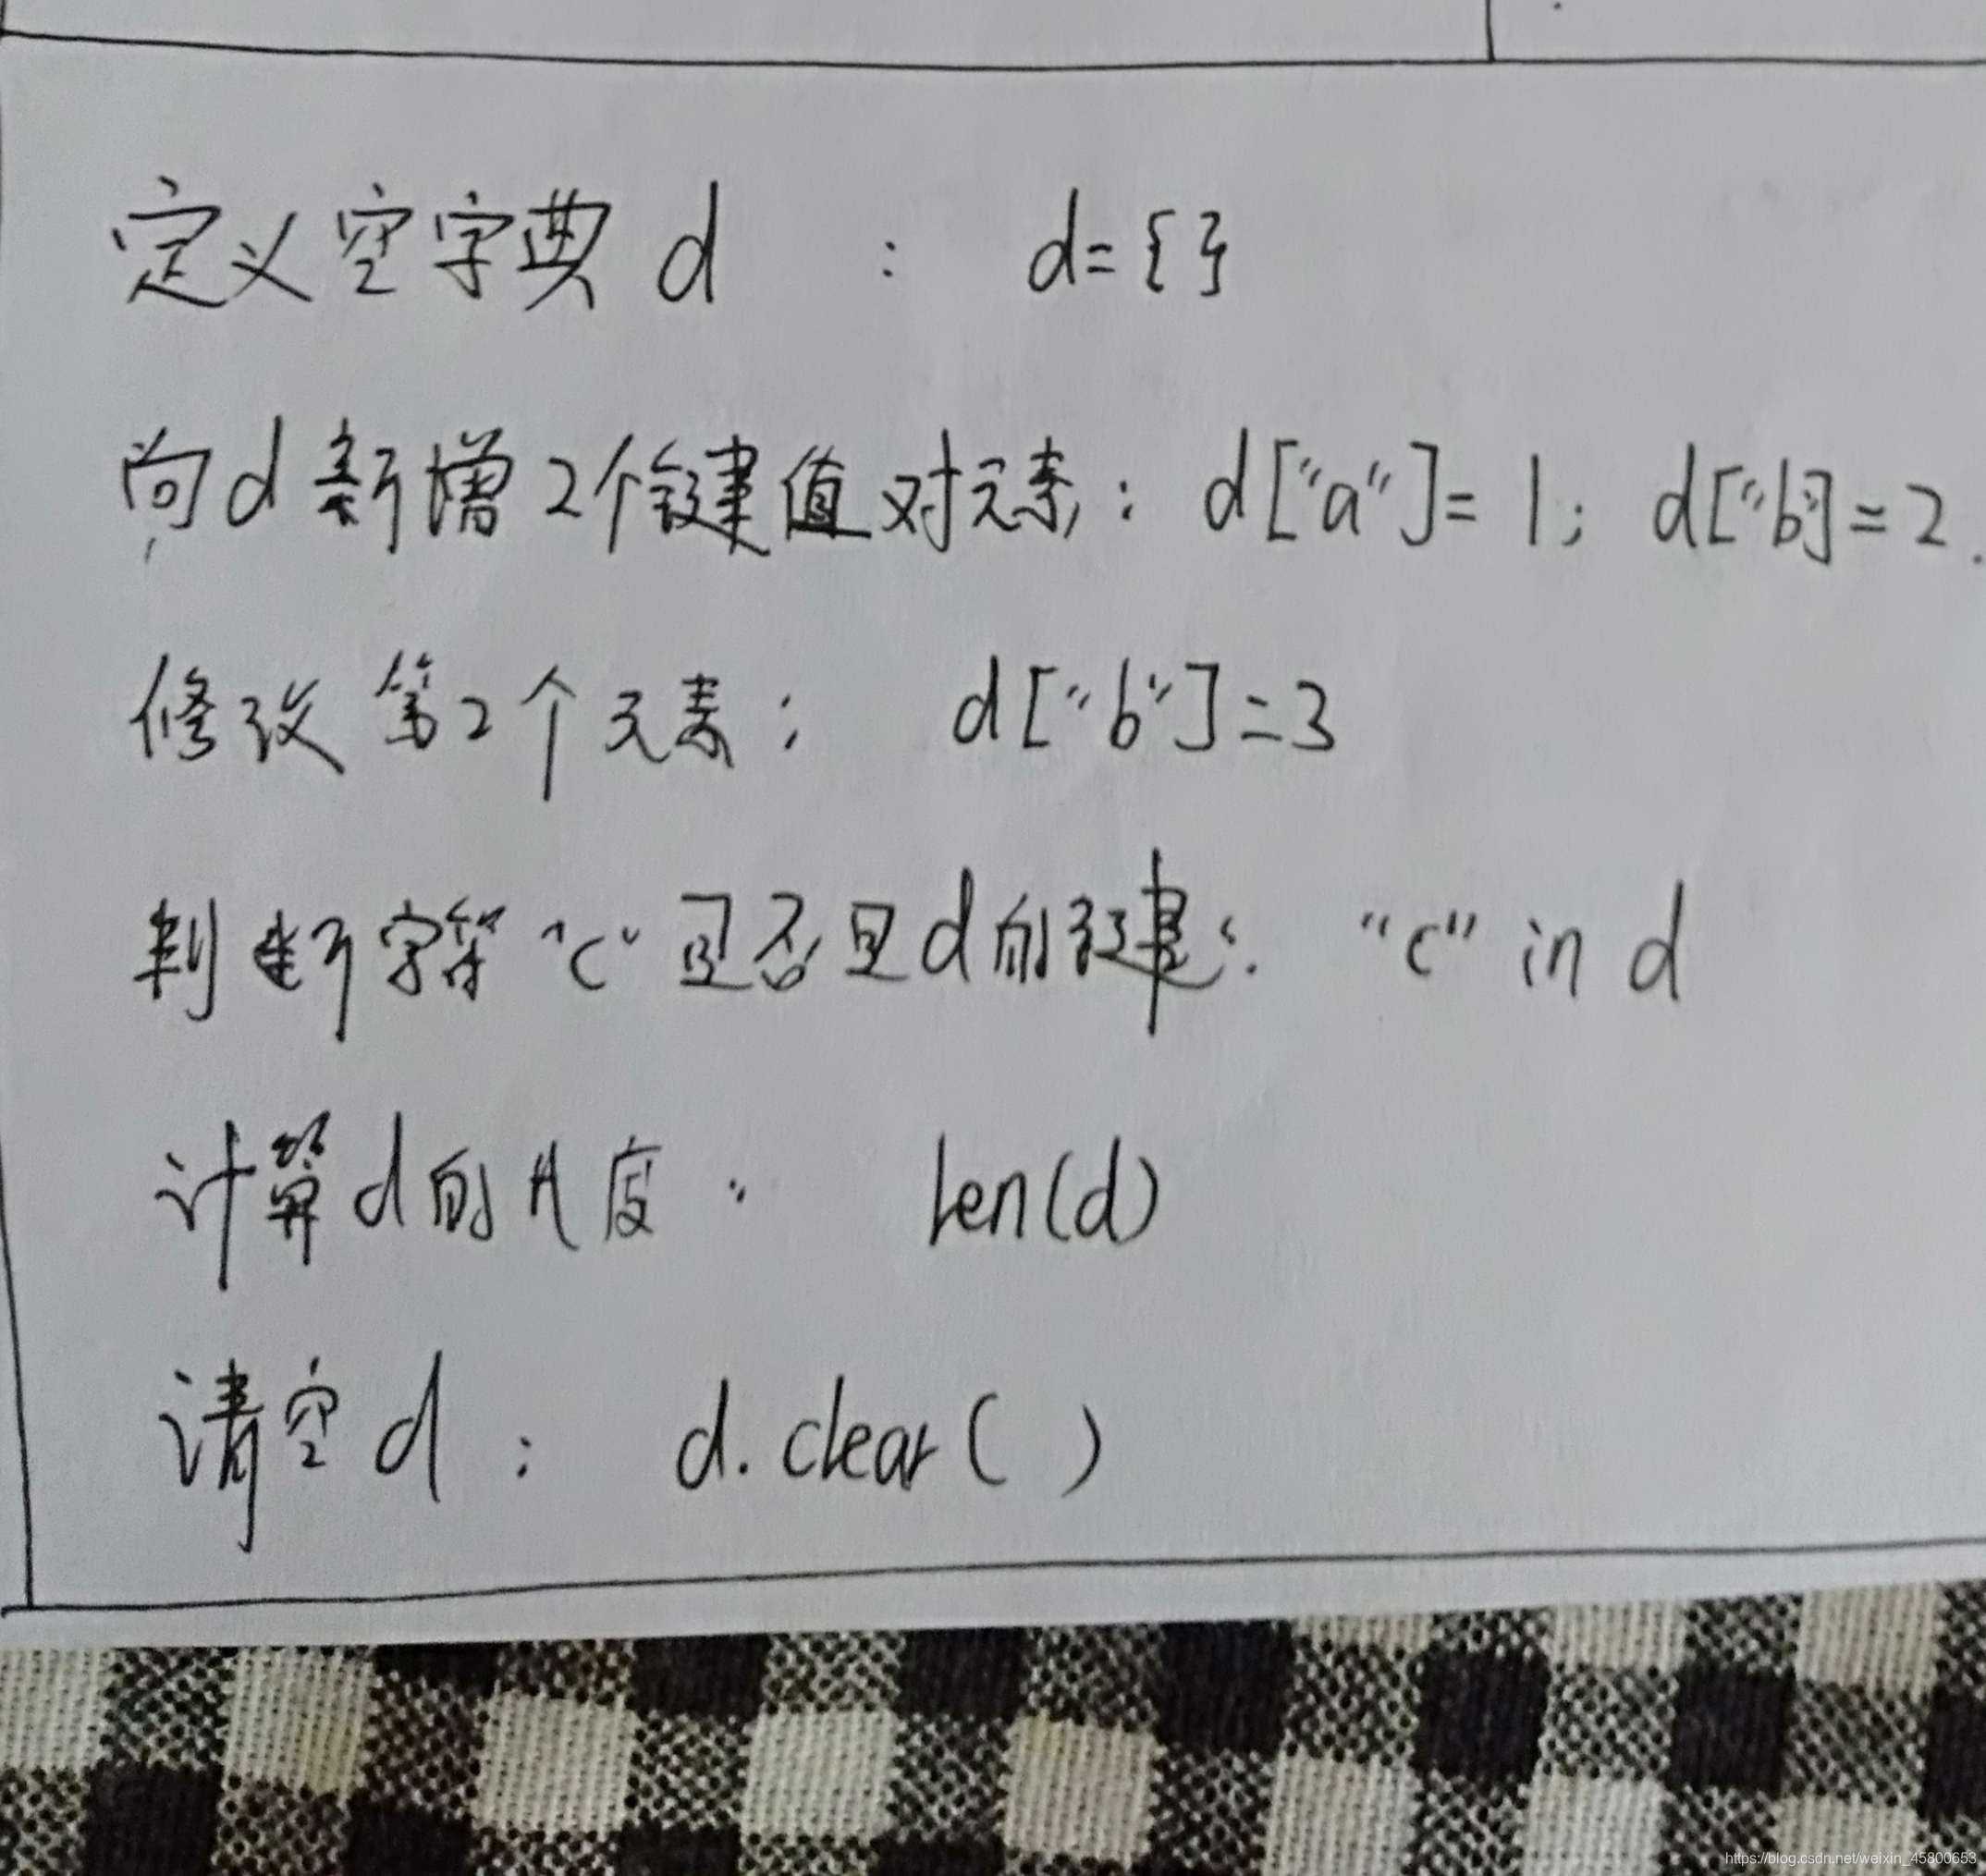 定义空字典 d : d={}
向d新增2个键值对元素: d["a"]=1; d["b"]=2.
修改第2个元素: d["b"]=3
判断字符"c"是否是d的键: "c" in d
计算d的长度: len(d)
清空d: d.clear( )
https://blog.csdn.net/weixin_45800653